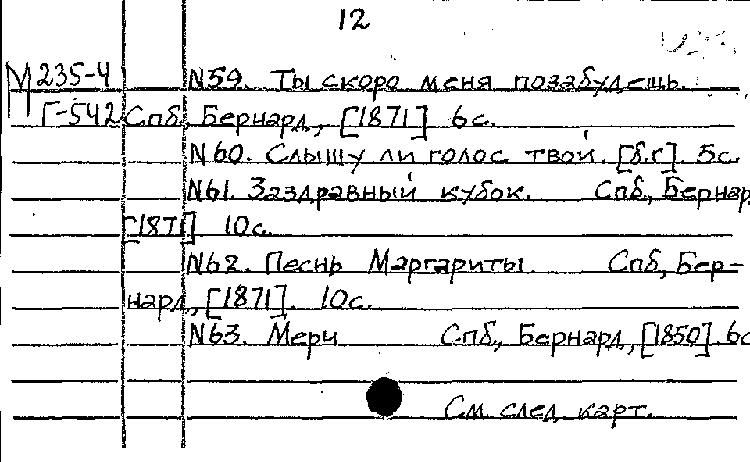 12
М 235-4 N59. Ты скоро меня позабудешь.
Г-542 Спб, Бернард, [1871] 6с.
N60. Слышу ли голос твой. [б.г]. 5с.
N61. Заздравный кубок. Спб, Бернар
[1871] 10с.
N62. Песнь Маргариты. Спб, Бер-
нард, [1871]. 10с.
N63. Мери Спб, Бернард, [1850]. 6с
См. след. карт.